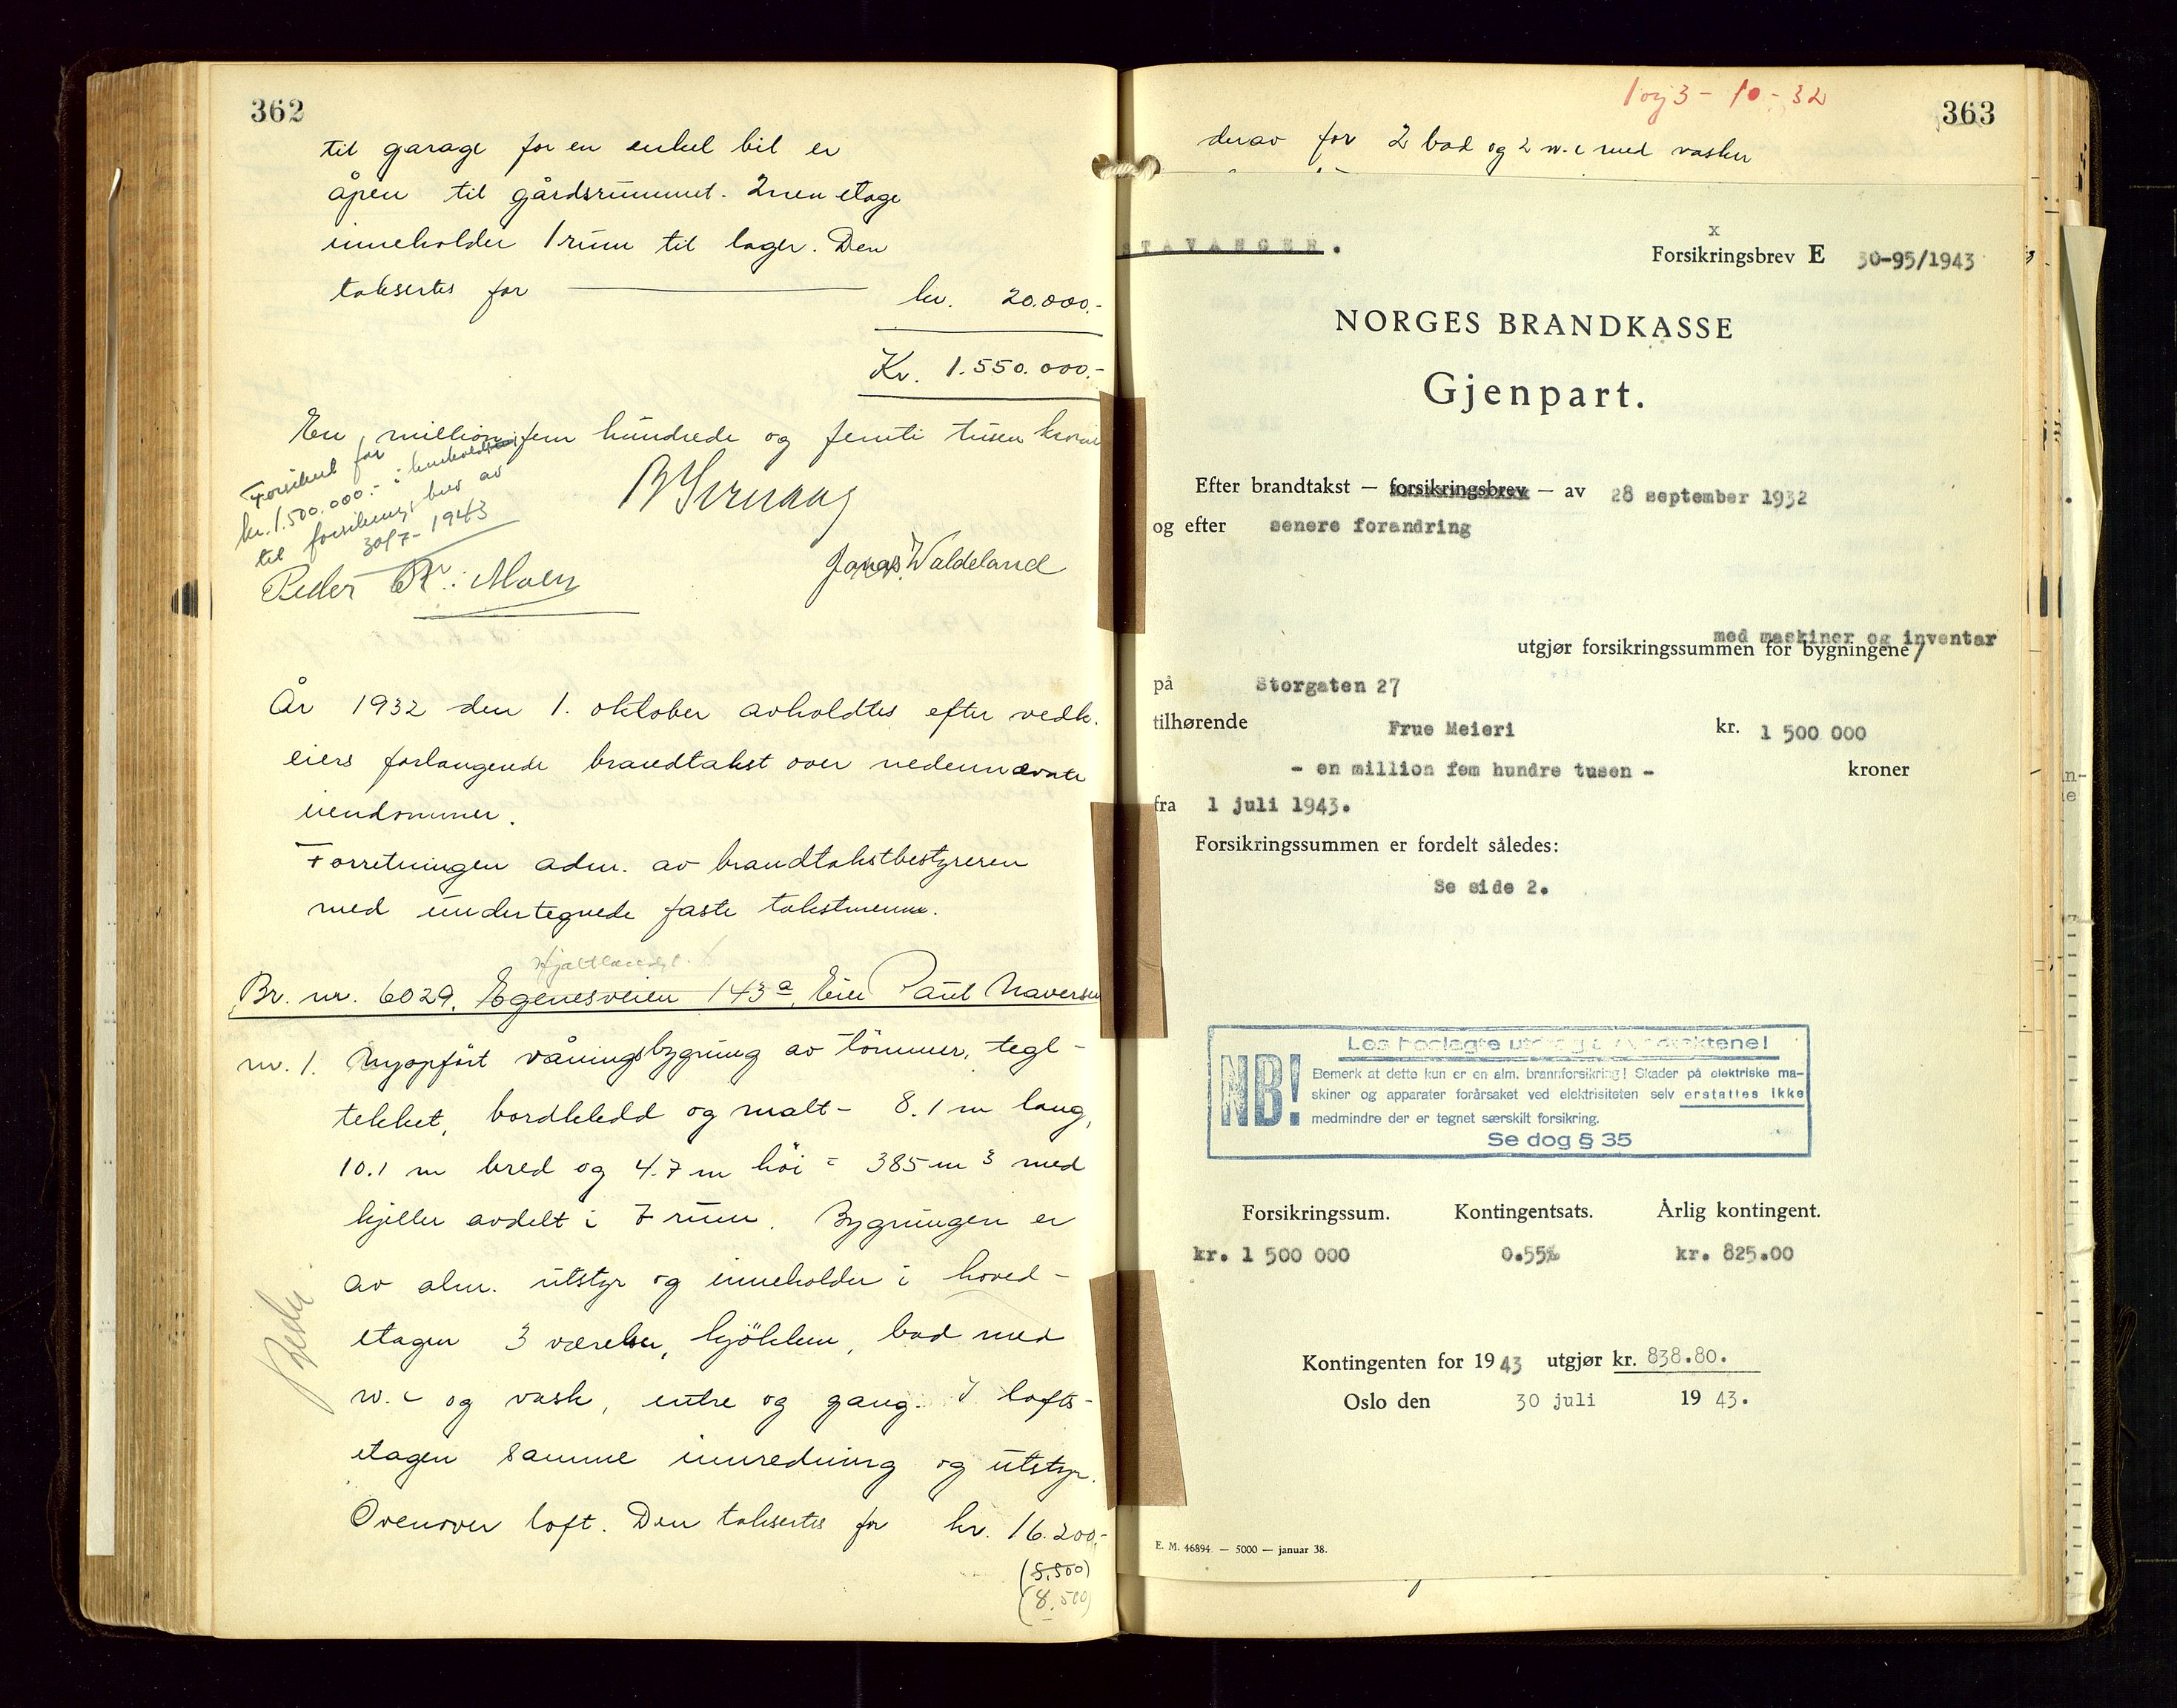 362
til garage for en enkel bil er
åpen til gårdsrummet. 2nen etage
inneholder 1 rum til lager. Den
taksertes for kr. 20.000.-
Kr. 1.550.000.-
En million fem hundrede og femti tusen kroner
Forsikret for
kr. 1.500.000.- i henhold
til forsikringsbrev av
30/7-1943
Jonas Waldeland
Peder Kr. Moen
År 1932 den 1. oktober avholdtes efter vedk.
eiers forlangende brandtakst over nedennævnte
eiendommer.
Forretningen adm. av brandtakstbestyreren
med undertegnede faste takstmenn.
Hjaltlandsgt.
Br. nr. 6029. Egenesveien 143a, Eier Paul Naversen
nr. 1. Nyopført våningsbygning av tömmer, tegl-
tekket, bordkledd og malt - 8.1 m lang,
10.1 m bred og 4.7 m höi = 385 m3 med
kjeller avdelt i 7 rum. Bygningen er
av alm. utstyr og inneholder i hoved-
etagen 3 værelser, kjökken, bad med
w.c og vask, entre og gang. I lofts-
etagen samme innredning og utstyr.
Ovenover loft. Den taksertes for kr. 16.200.-
(8.500)
(8.500)
1 og 3 - 10 - 32
363
derav for 2 bad og 2 w.c med vasker
STAVANGER.
x
Forsikringsbrev E 30-95/1943
NORGES BRANDKASSE
Gjenpart.
Efter brandtakst — forsikringsbrev — av 28 september 1932
og efter senere forandring
med maskiner og inventar
utgjør forsikringssummen for bygningene/
på Storgaten 27
tilhørende Frue Meieri kr. 1 500 000
- en million fem hundre tusen - kroner
fra 1 juli 1943.
Forsikringssummen er fordelt således:
Se side 2.
NB!
Bemerk at dette kun er en alm. brannforsikring! Skader på elektriske ma-
skiner og apparater forårsaket ved elektrisiteten selv erstattes ikke
medmindre der er tegnet særskilt forsikring.
Se dog § 35
Forsikringssum. Kontingentsats. Årlig kontingent.
kr. 1 500 000 0.55‰ kr. 825.00
Kontingenten for 1943 utgjør kr. 838.80.
Oslo den 30 juli 19 43.
E. M. 46894. — 5000 — januar 38.